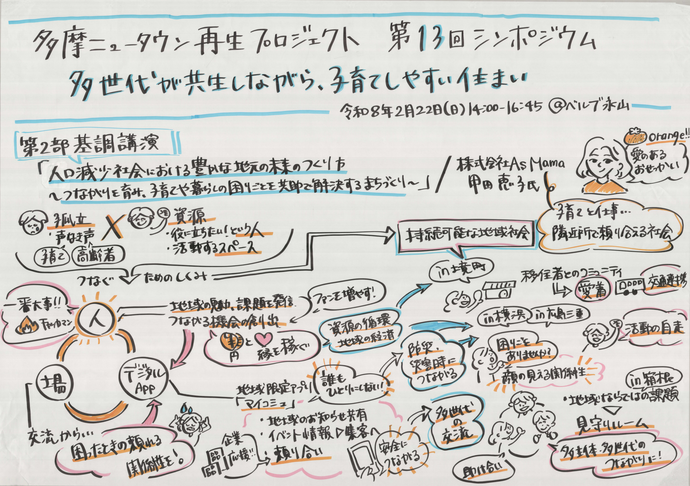 多摩ニュータウン再生プロジェクト 第13回シンポジウム
多世代が共生しながら、子育てしやすい住まい
令和8年2月22日(日)14:00-16:45 @ベルブ永山
第2部 基調講演
「人口減少社会における豊かな地元の未来のつくり方
〜つながりを育み、子育てや暮らしの困りごとを共助で解決するまちづくり〜」
株式会社AsMama
甲田恵子氏
orange!!
愛のある
おせっかい
子育てと仕事…
隣近所で頼り合える社会
孤立
声なき声
子育て
高齢者
資源
・役に立ちたい!という人
・活動するスペース
つなぐ
ためのしくみ
持続可能な地域社会
一番大事!!
人
場
デジタル
APP
交流から…
困ったときの頼れる
関係性を!
地域の魅力、課題を発信
つながる機会の創り出し
ファンを増やす!
円
稼を稼ぐ!
資源の循環
地域の経済
地域限定アプリ
「マイコミュ」
誰も
ひとりにしない!
・地域のお知らせ共有
・イベント情報▷集客へ
企業
応援
頼り合い
安全に
つながる
防災…
災害時に
つながる
多世代の
交流
in 境町
移住者とのコミュニティ
愛着
交通連携
in 横浜
活動の自走
困りごと
ありませんか?
顔の見える関係性
助け合い
in 箱根
・地域ならではの課題
見守りルーム
多主体・多世代の
つながりに!